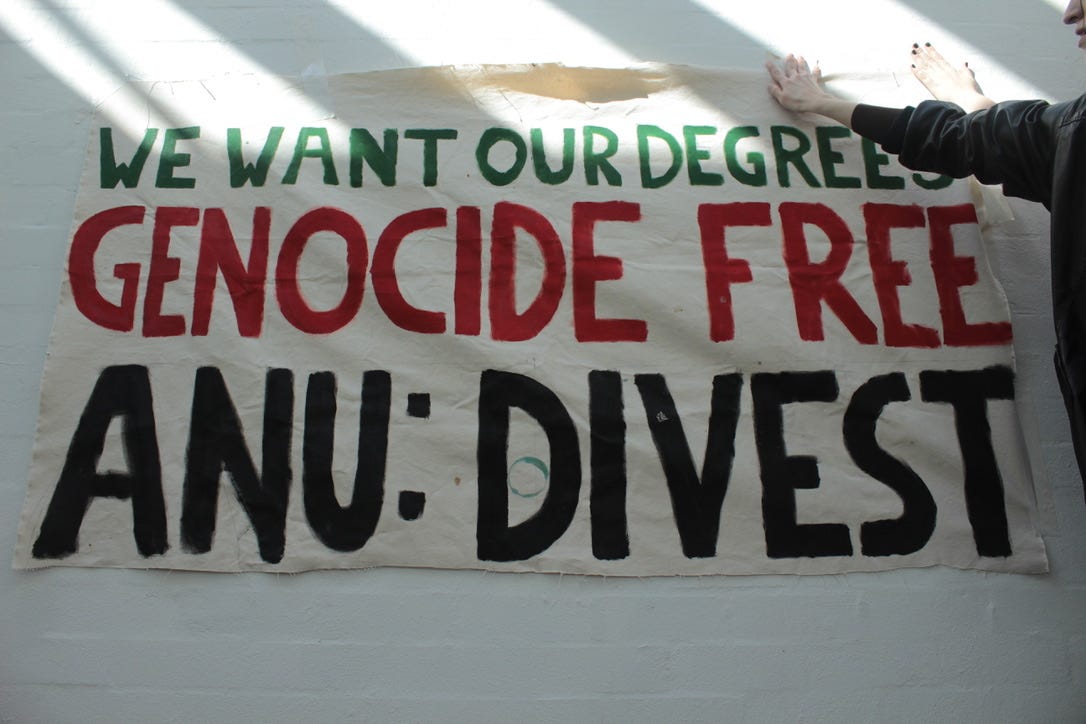 WE WANT OUR DEGREES
GENOCIDE FREE
ANU: DIVEST